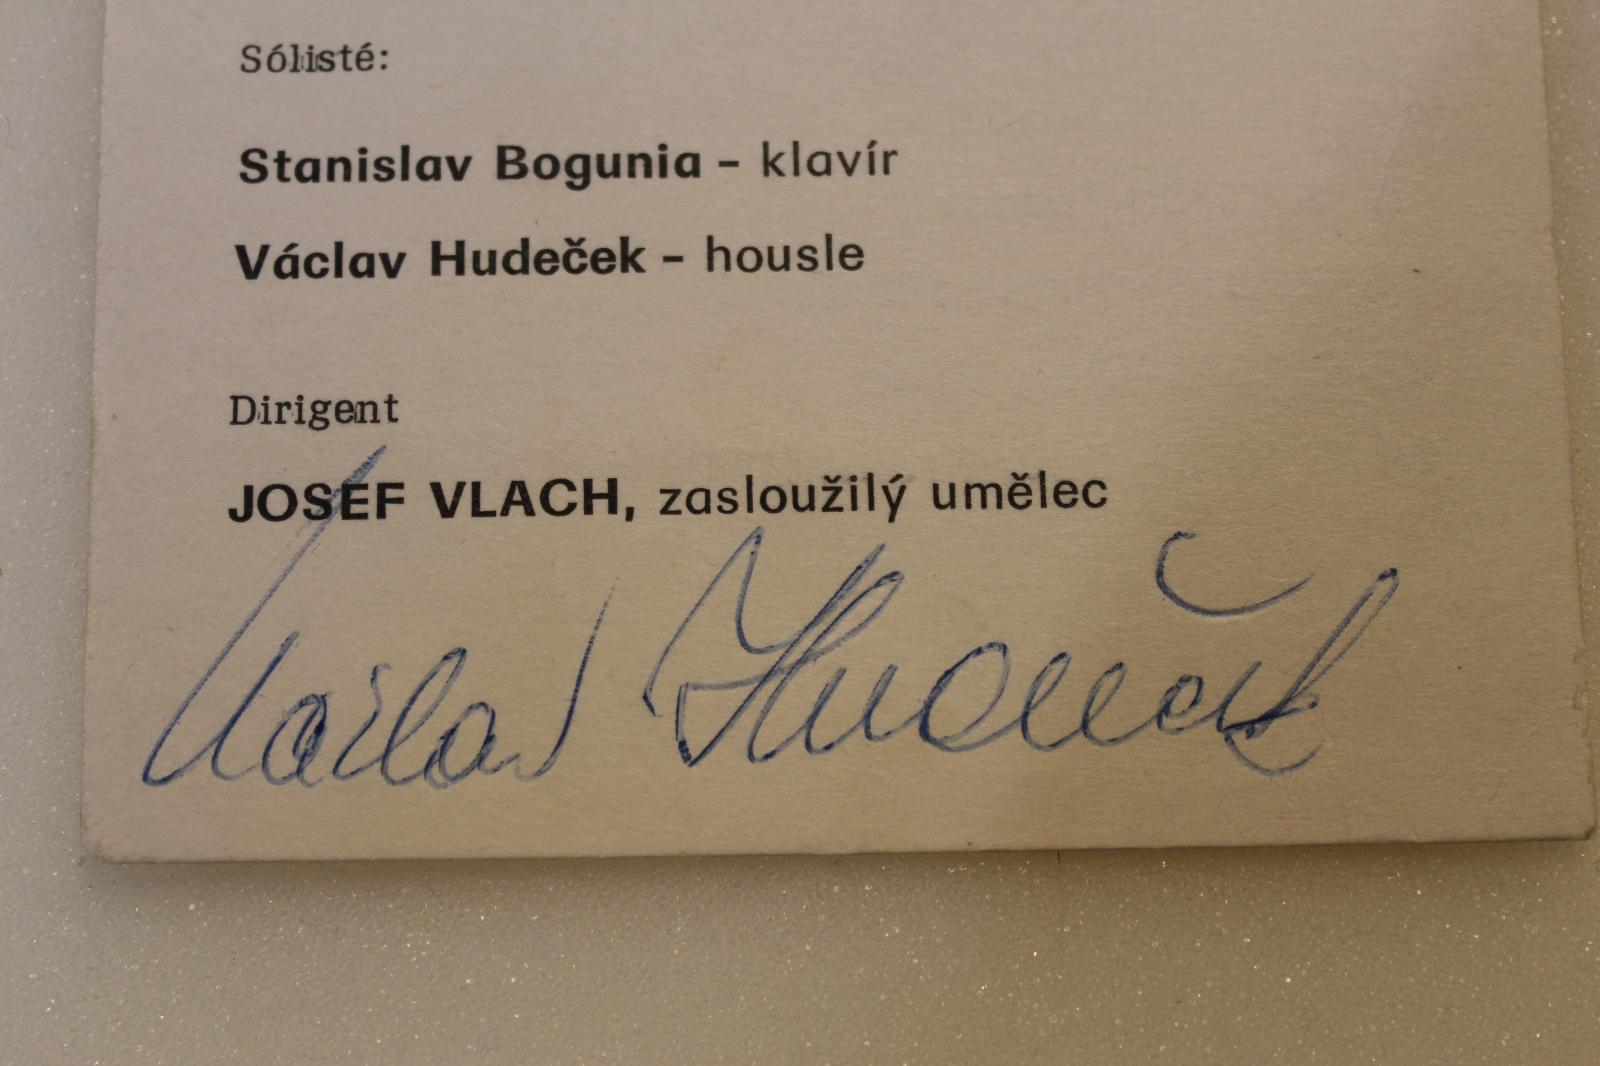 Sólisté:
Stanislav Bogunia – klavír
Václav Hudeček – housle
Dirigent
JOSEF VLACH, zasloužilý umělec
Václav Hudeček